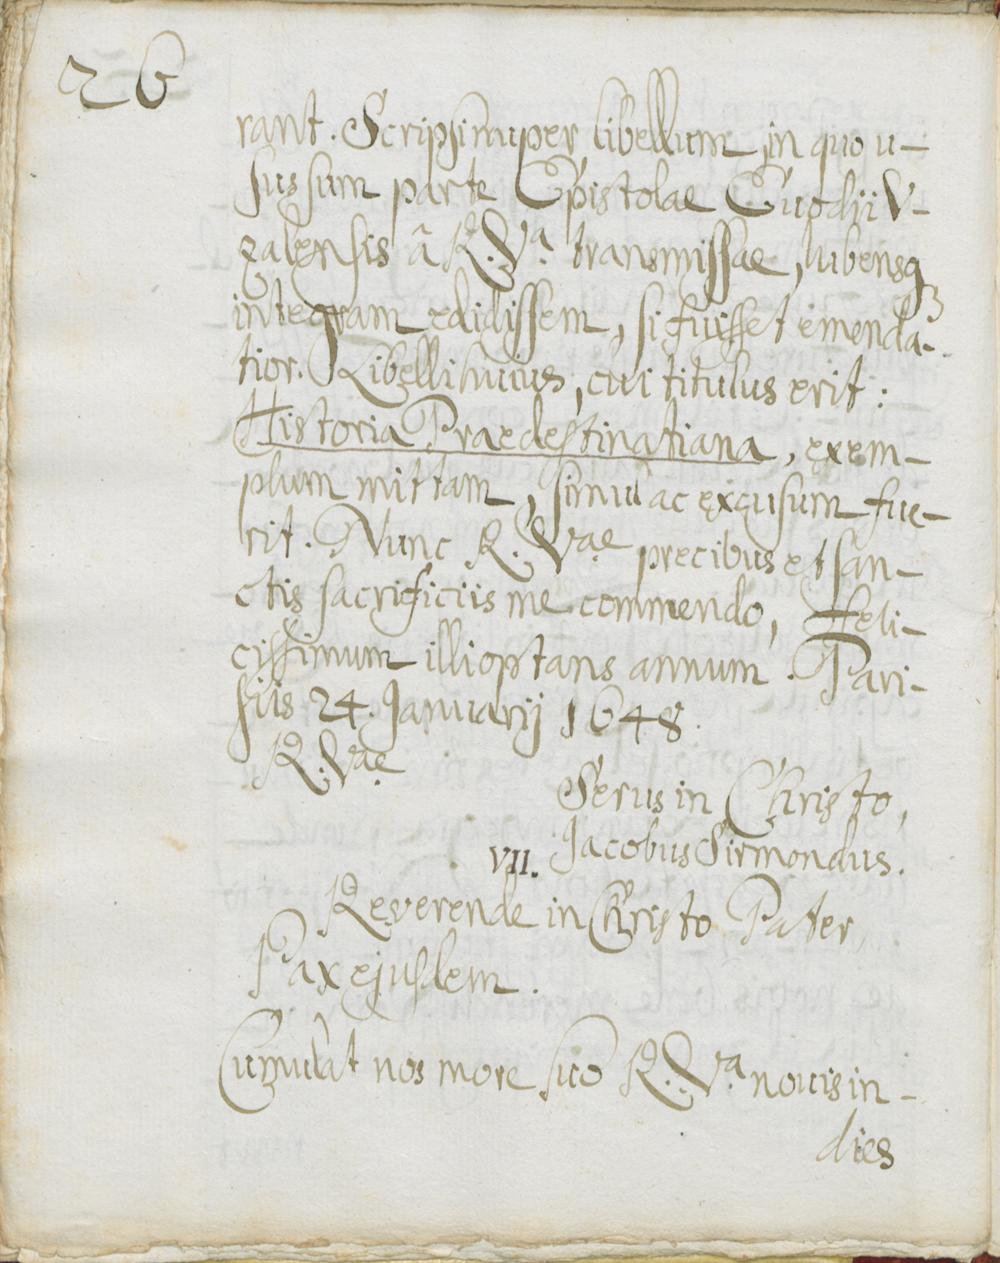 26
rant. Scripsi nuper libellum in quo u-
sus sum parte Epistolae Euodii V-
zalensis â R. Vª. transmissae, lubensq3
integram edidissem, si fuisset emenda-
tior. Libelli huius, cui titulus erit:
Historia Praedestinatiana, exem-
plum mittam, simul ac excusum fue-
rit. Nunc R. Vae precibus et san-
ctis sacrificiis me commendo, Feli-
cissimum illi optans annum. Pari-
siis 24. Januarij 1648.
R. Vae
Serus in Christo,
Jacobus Sirmondus.
VII.
Reverende in Christo Pater
Pax ejusdem.
Cumulat nos more suo R. Vª nouis in-
dies